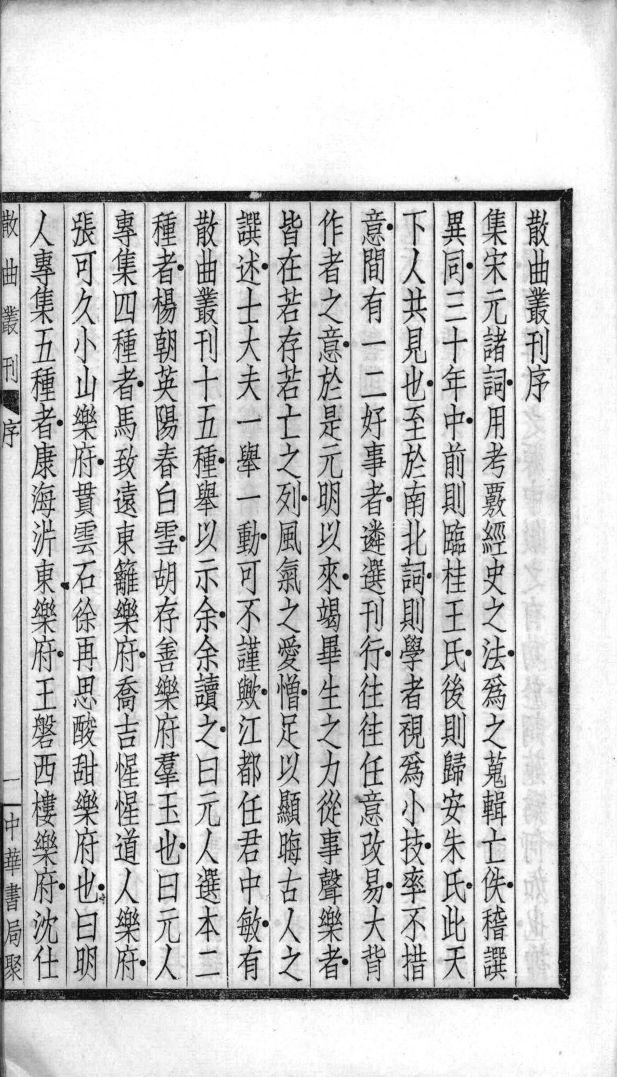 散曲叢刊序
集宋元諸詞用考覈經史之法爲之蒐輯士佚稽譔
異同三十年中前則臨桂王氏後則歸安朱氏此天
下人共見也至於南北詞則學者視爲小技率不措
意間有一二好事者遴選刊行往往任意改易大背
作者之意於是元明以來竭畢生之力從事聲樂者
皆在若存若士之列風氣之愛憎足以顯晦古人之
譔述士大夫一舉一動可不謹歟江都任君中敏有
散曲叢刊十五種舉以示余余讀之曰元人選本二
種者楊朝英陽春白雪胡存善樂府羣玉也曰元人
專集四種者馬致遠東籬樂府喬吉惺惺道人樂府
張可久小山樂府貫雲石徐再思酸甜樂府也曰明
人專集五種者康海沜東樂府王磐西樓樂府沈仕
散曲叢刊 序 一 中華書局聚